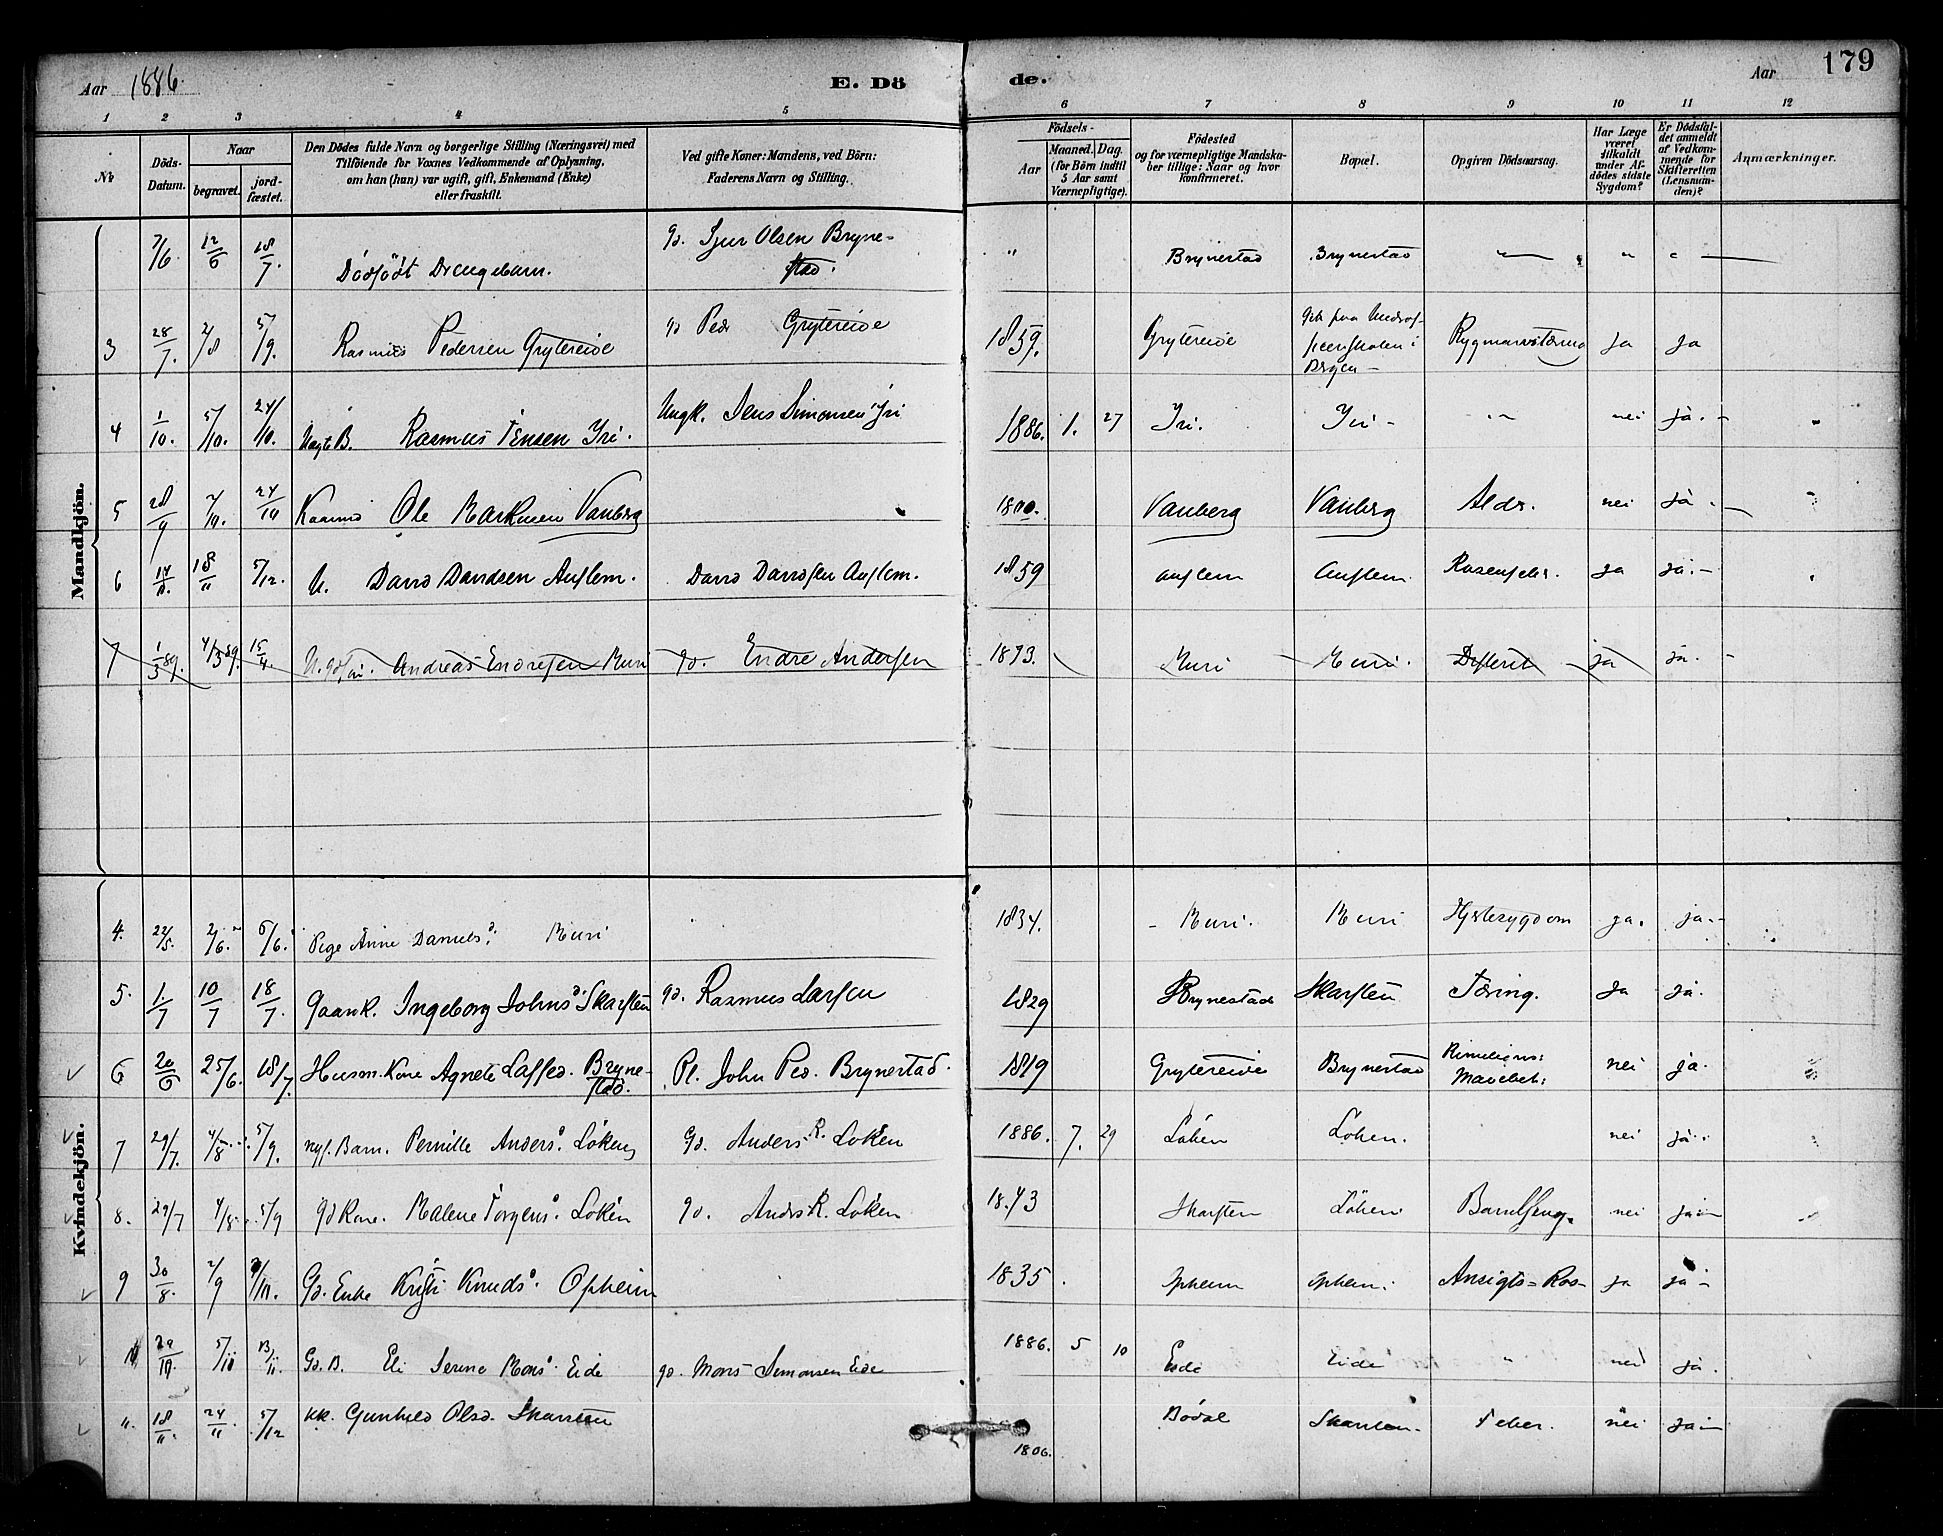 Aar 1886.
E. Dö
de.
Aar
179
1 2 3 4 5 6 7 8 9 10 11 12
No
Döds-Datum.
Naar
begravet.
jord-fæstet.
Den Dödes fulde Navn og borgerlige Stilling (Næringsvei) med
Tilföiende for Voxnes Vedkommende af Oplysning,
om han (hun) var ugift, gift, Enkemand (Enke)
eller fraskilt.
Ved gifte Koner: Mandens, ved Börn:
Faderens Navn og Stilling.
Födsels-
Aar
Maaned. Dag.
(for Börn indtil
5 Aar samt
Værnepligtige).
Födested
og for værnepligtige Mandska-
ber tillige: Naar og hvor
konfirmeret.
Bopæl.
Opgiven Dödsaarsag.
Har Læge
været
tilkaldt
under Af-
dödes sidste
Sygdom?
Er Dödsfal-
det anmeldt
af Vedkom-
mende for
Skifteretten
(Lensman-
den)?
Anmærkninger.
Mandkjön.
7/6 12/6 18/7. Dödfödt Drengebarn. gd. Sjur Olsen Bryne-
stad. " Brynestad Brynestad " "
3 28/7. 2/8 5/9. Rasmus Pedersen Grytereide gd Peder Grytereide 1859. Grytereide
Bergen - Rygmarvstæring ja ja
4 1/10. 5/10. 24/10. Uægt B. Rasmus Jensen Yri. Ungk. Jens Simonsen Yri 1886. 1. 27 Yri. Yri - " nei ja. -
5 28/9 2/10. 24/10 Kaarmd Ole Rasmusen Vanberg 1800. Vanberg Vanberg Aldr. nei ja. -
6 14/11. 18/11 5/12. U. David Davidsen Auflem. David Davidsen Auflem. 1859 Auflem Auflem. Rosenfeber. ja ja. -
7 1/3 89. 4/3 89. 15/4. Andreas Endresen Muri gd. Endre Andersen 1873. Muri Muri. Difterit ja ja. -
Kvindekjön.
4. 22/5. 2/6. 6/6. Pige Anne Daniels d. Muri 1834. - Muri. Muri ja. ja. -
5. 1/7 10/7 18/7. Gaardk. Ingeborg Johns d. Skarsten gd. Rasmus Larsen 1829 Brynestad Skarsten Tæring. ja ja.
6 20/6 25/6. 18/7. Husm. Kone Agnete Lasses d. Bryne-
stad. Pl. John Ped. Brynestad. 1819 Grytereide Brynestad nei ja.
7 29/7. 4/8. 5/9. nyf. Barn. Pernille Anders d. Løken gd. Anders R. Løken 1886. 7. 29 Løken Løken. nei ja.
8. 29/7 4/8. 5/9 gd Kone. Malene Jørgens d. Løken gd. Anders R. Løken 1843 Skarsten Løken Barselseng. nei ja
9 30/8. 2/9 Gd. Enke Kristi Knuds d. Opheim 1835. Opheim Opheim. Ansigts-Ros- ja ja
29/10 5/11 Gd. B. Eli Serine Mons d. Eide gd. Mons Simonsen Eide 1886. 5 10 Eide Eide " nei ja.
". 18/11. 24/11. 5/12 kk. Gunhild Olsd. Skarsten 1806. Bødal Skarsten. Feber. nei ja